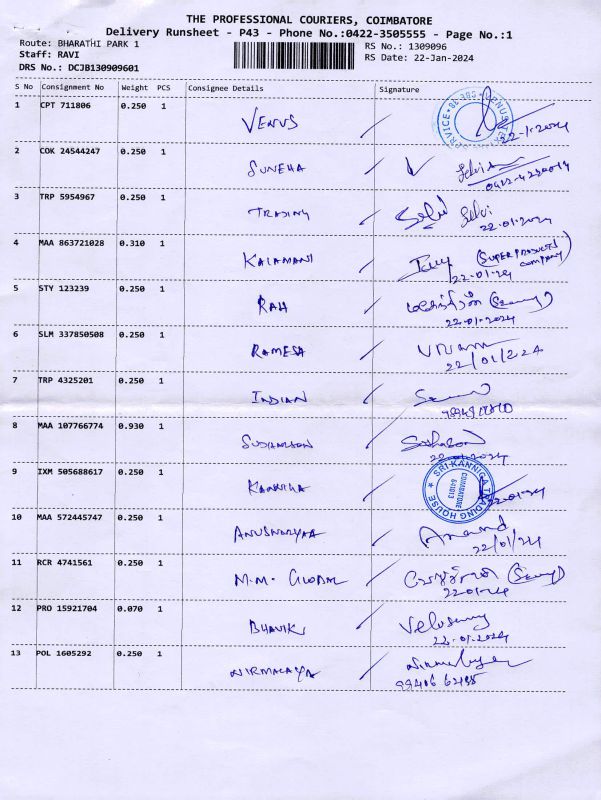 THE PROFESSIONAL COURIERS, COIMBATORE
Delivery Runsheet - P43 - Phone No.:0422-3505555 - Page No.:1
Route: BHARATHI PARK 1
RS No.: 1309096
Staff: RAVI
RS Date: 22-Jan-2024
DRS No.: DCJB130909601
S No Consignment No Weight PCS Consignee Details Signature
1 CPT 711806 0.250 1 VENUS 22-1-2024
2 COK 24544247 0.250 1 SUNEHA
3 TRP 5954967 0.250 1 TRADING Selvi
22-01-2024
4 MAA 863721028 0.310 1 KALAMANI (SUPER PRODUCTS
company)
22-01-24
5 STY 123239 0.250 1
22-01-2024
6 SLM 337850508 0.250 1 RAMESA
22/01/224
7 TRP 4325201 0.250 1 INDIAN
8 MAA 107766774 0.930 1
22-01-2024
9 IXM 505688617 0.250 1 SRI KANNIGA TRADING HOUSE
COIMBATORE
22-01-24
10 MAA 572445747 0.250 1 Anand
22/01/24
11 RCR 4741561 0.250 1 M.M. GLOBAL
22-01-24
12 PRO 15921704 0.070 1 BHAVIK Velusamy
22-01-2024
13 POL 1605292 0.250 1 NIRMALAYA